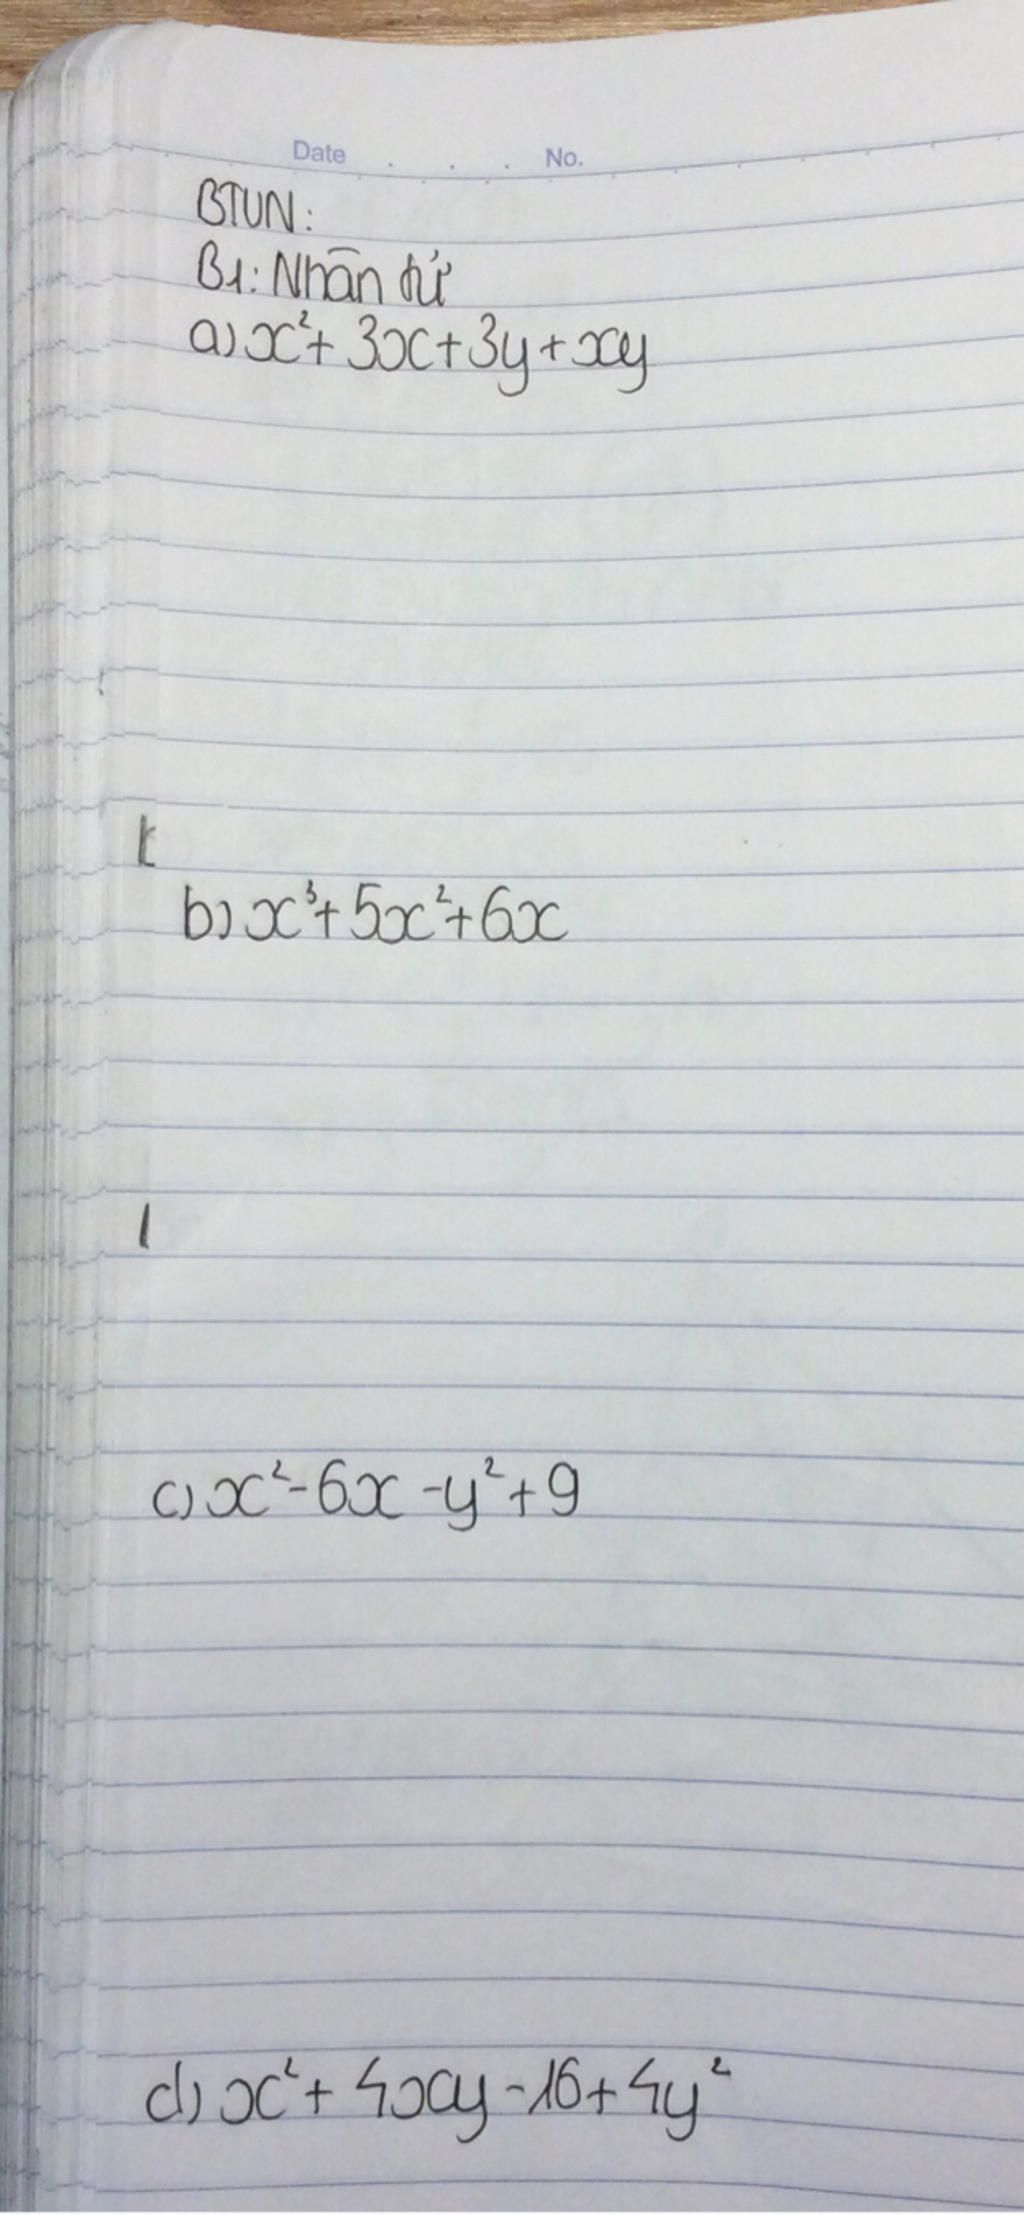 Date . . . No.
BTVN:
B1: Nhân tử
a) x² + 3x + 3y + xy
b) x³ + 5x² + 6x
c) x² - 6x - y² + 9
d) x² + 4xy - 16 + 4y²